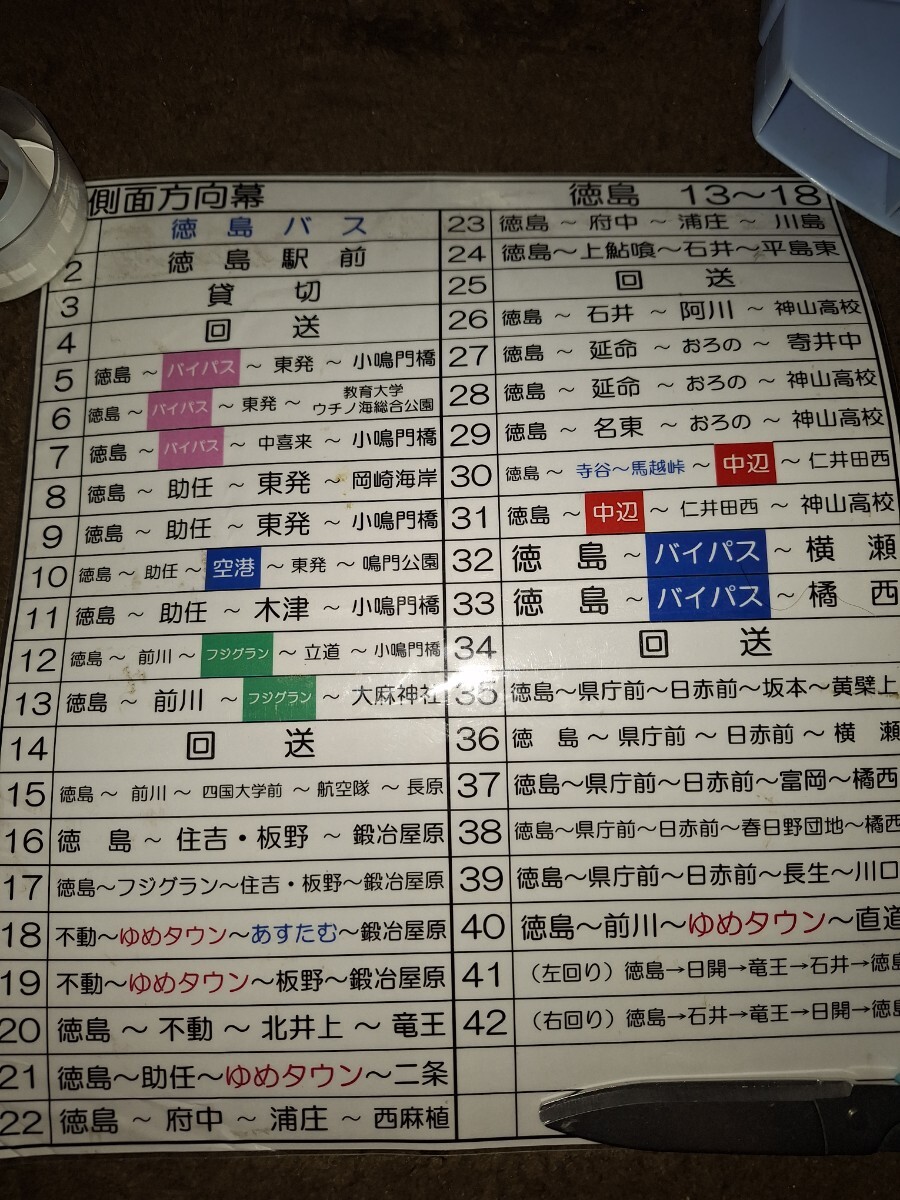 側面方向幕 徳島 13～18
徳島バス
2 徳島駅前
3 貸切
4 回送
5 徳島～バイパス～東発～小鳴門橋
6 徳島～バイパス～東発～教育大学 ウチノ海総合公園
7 徳島～バイパス～中喜来～小鳴門橋
8 徳島～助任～東発～岡崎海岸
9 徳島～助任～東発～小鳴門橋
10 徳島～助任～空港～東発～鳴門公園
11 徳島～助任～木津～小鳴門橋
12 徳島～前川～フジグラン～立道～小鳴門橋
13 徳島～前川～フジグラン～大麻神社
14 回送
15 徳島～前川～四国大学前～航空隊～長原
16 徳島～住吉・板野～鍛冶屋原
17 徳島～フジグラン～住吉・板野～鍛冶屋原
18 不動～ゆめタウン～あすたむ～鍛冶屋原
19 不動～ゆめタウン～板野～鍛冶屋原
20 徳島～不動～北井上～竜王
21 徳島～助任～ゆめタウン～二条
22 徳島～府中～浦庄～西麻植
23 徳島～府中～浦庄～川島
24 徳島～上鮎喰～石井～平島東
25 回送
26 徳島～石井～阿川～神山高校
27 徳島～延命～おろの～寄井中
28 徳島～延命～おろの～神山高校
29 徳島～名東～おろの～神山高校
30 徳島～寺谷～馬越峠～中辺～仁井田西
31 徳島～中辺～仁井田西～神山高校
32 徳島～バイパス～横瀬
33 徳島～バイパス～橘西
34 回送
35 徳島～県庁前～日赤前～坂本～黄檗上
36 徳島～県庁前～日赤前～横瀬
37 徳島～県庁前～日赤前～富岡～橘西
38 徳島～県庁前～日赤前～春日野団地～橘西
39 徳島～県庁前～日赤前～長生～川口
40 徳島～前川～ゆめタウン～直道
41 （左回り）徳島→日開→竜王→石井→徳島
42 （右回り）徳島→石井→竜王→日開→徳島